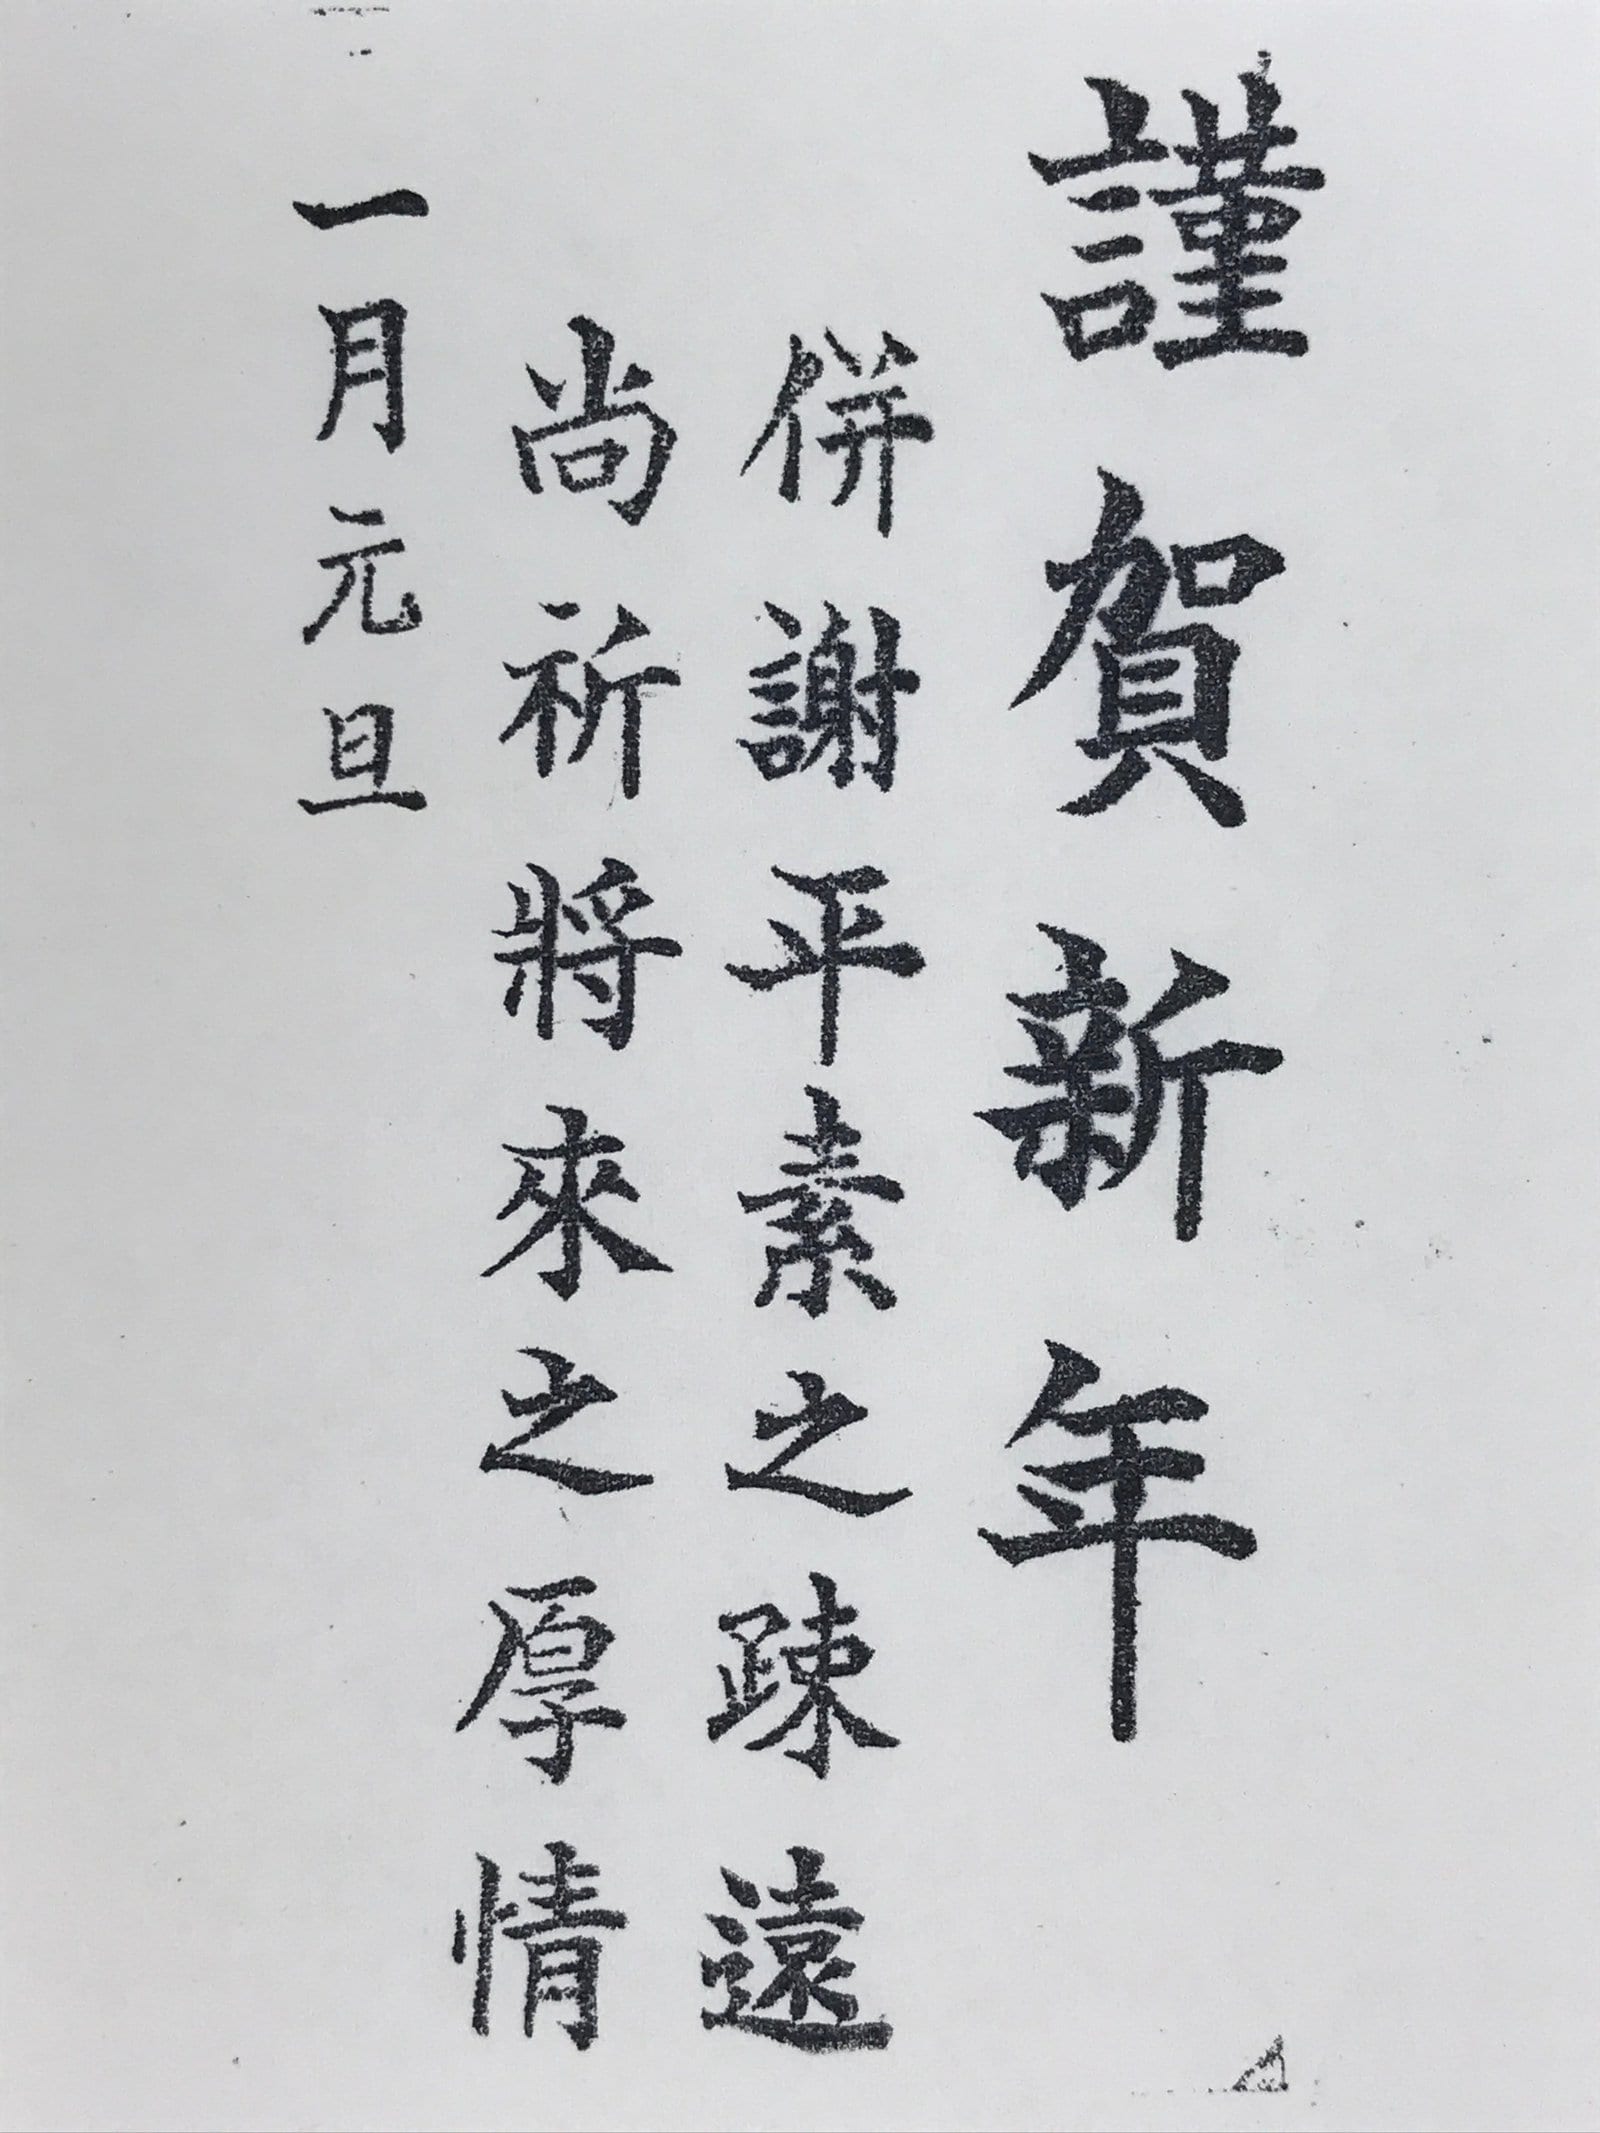 謹賀新年
併謝平素之疎遠
尚祈將來之厚情
一月元旦